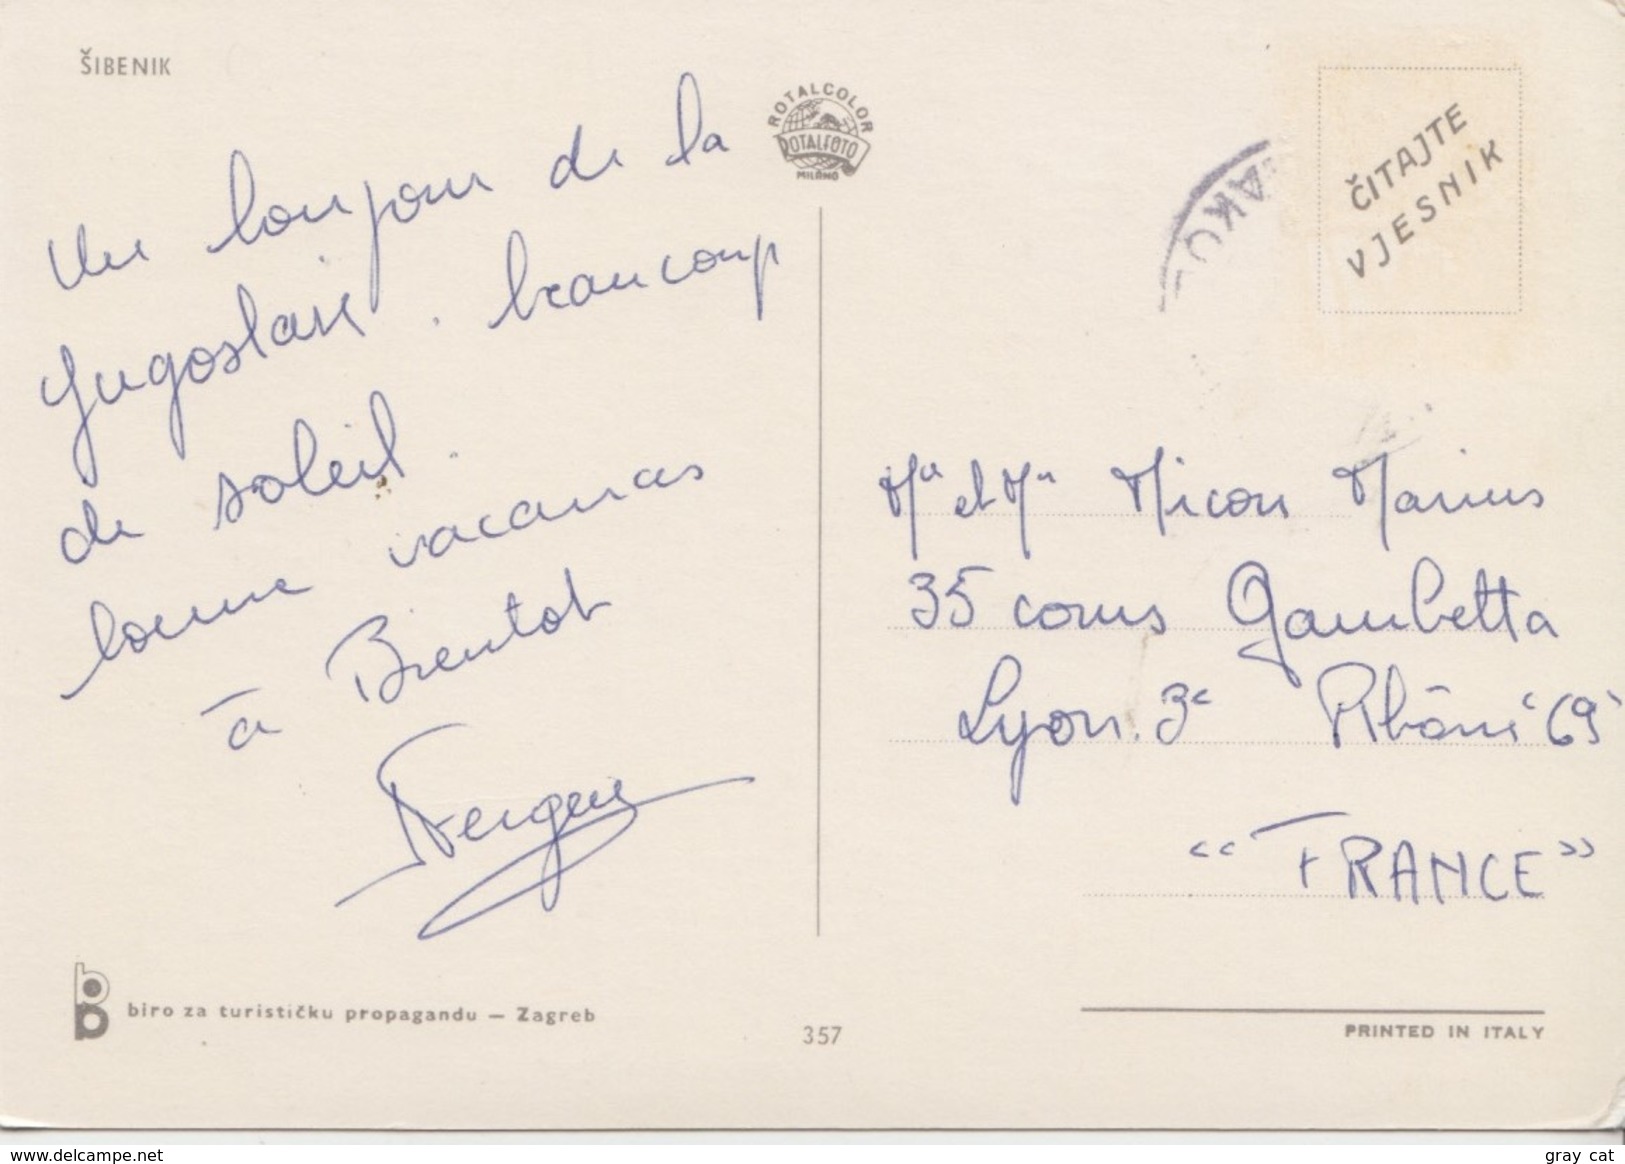 ŠIBENIK
ROTALCOLOR
ROTALFOTO
MILANO
Un bonjour de la
Yugoslavie. beaucoup
de soleil.
bonne vacances
à Bientot
ČITAJTE
VJESNIK
AKO
Mr et Mm Micon Marius
35 cours Gambetta
Lyon. 3e Rhône 69
"FRANCE"
biro za turističku propagandu — Zagreb
357
PRINTED IN ITALY
www.delcampe.net
gray cat